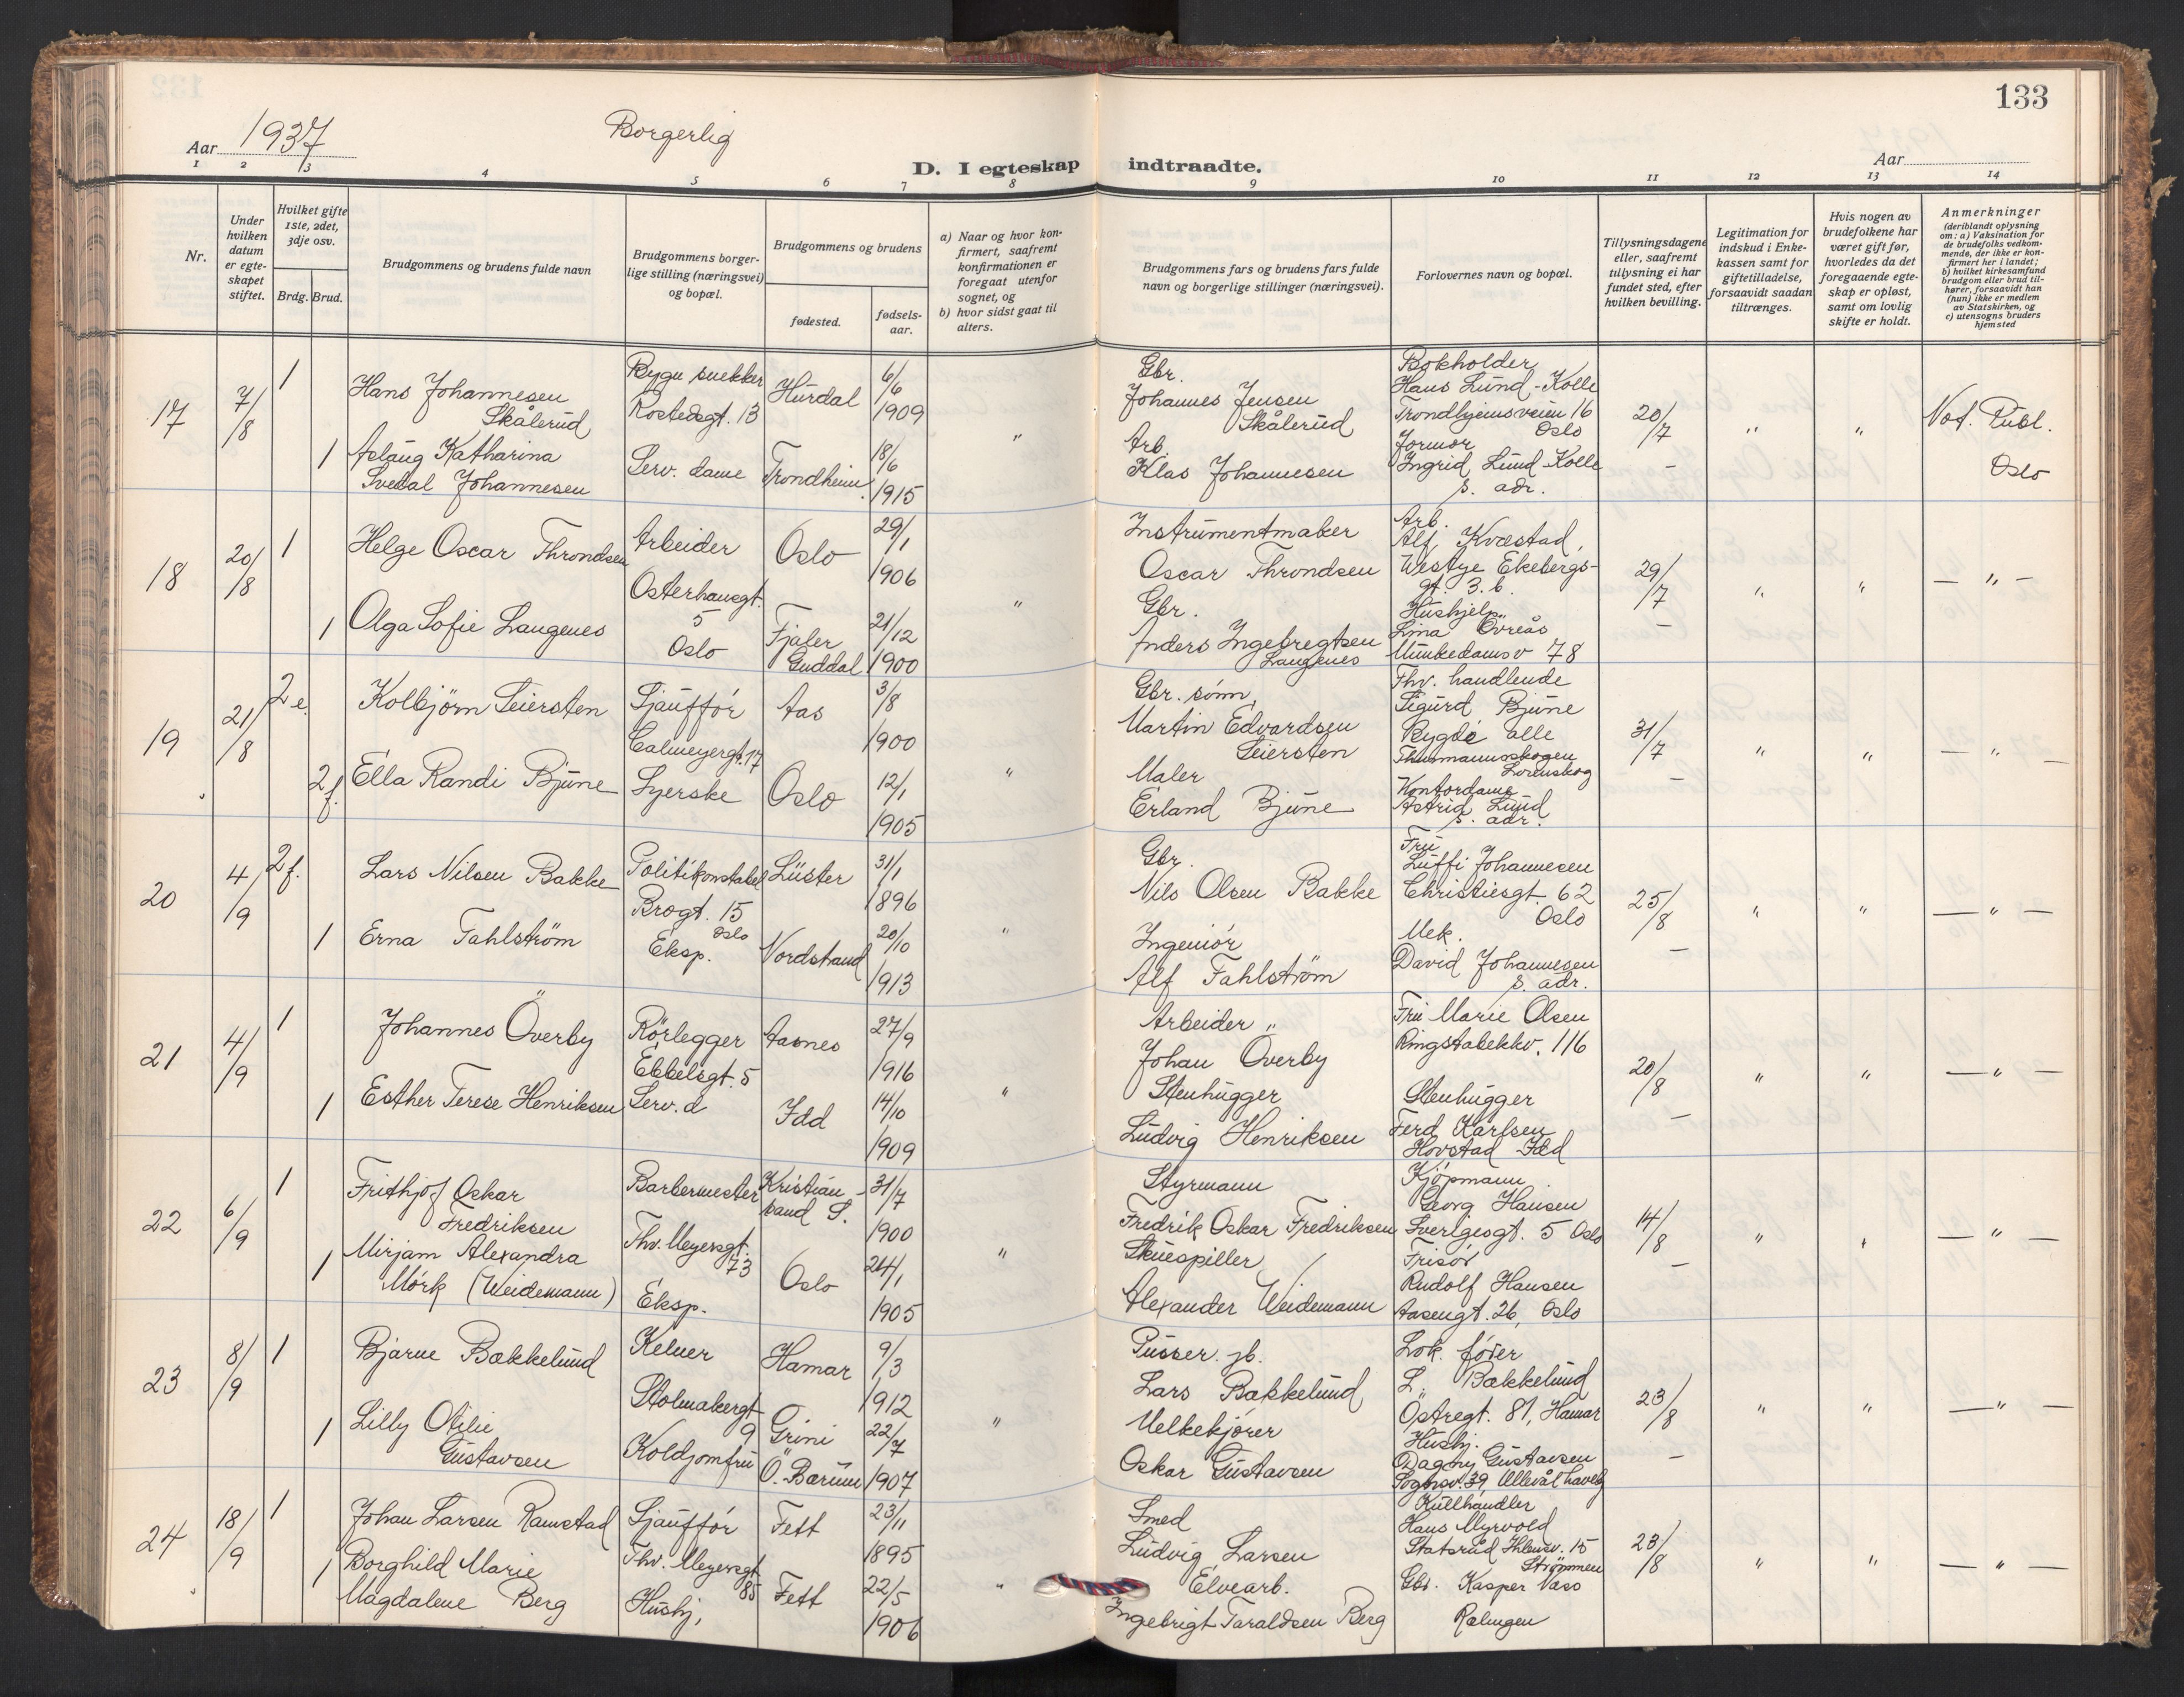 133
Aar 1937
Borgerlig
D. I egteskap indtraadte.
Aar
1 2 3 4 5 6 7 8 9 10 11 12 13 14
Nr.
Under hvilken datum er egteskapet stiftet.
Hvilket gifte 1ste, 2det, 3dje osv.
Brdg. Brud.
Brudgommens og brudens fulde navn
Brudgommens borgerlige stilling (næringsvei) og bopæl.
Brudgommens og brudens
fødested.
fødselsaar.
a) Naar og hvor konfirmert, saafremt konfirmationen er foregaat utenfor sognet, og
b) hvor sidst gaat til alters.
Brudgommens fars og brudens fars fulde navn og borgerlige stillinger (næringsvei).
Forlovernes navn og bopæl.
Tillysningsdagene eller, saafremt tillysning ei har fundet sted, efter hvilken bevilling.
Legitimation for indskud i Enkekassen samt for giftetilladelse, forsaavidt saadan tiltrænges.
Hvis nogen av brudefolkene har været gift før, hvorledes da det foregaaende egteskap er opløst, samt om lovlig skifte er holdt.
Anmerkninger (deriblandt oplysning om: a) Vaksination for de brudefolks vedkommende, der ikke er konfirmert her i landet; b) hvilket kirkesamfund brudgom eller brud tilhører, forsaavidt han (hun) ikke er medlem av Statskirken, og c) utensogns bruders hjemsted
17
7/8
1
Hans Johannesen
Skålerud
Bygn snekker
Rostedsgt. 13
Hurdal
6/6
1909
Gbr.
Johannes Jensen
Skålerud
Bokholder
Hans Lund-Kolle
Trondhjemsveien 16
Oslo
20/7
"
"
Not. Publ.
Oslo
1
Aslaug Katharina
Svedal Johannesen
Serv. dame
Trondheim
18/6
1915
"
Arb.
Klas Johannesen
Jormor
Ingrid Lund-Kolle
s. adr.
18
20/8
1
Helge Oscar Throndsen
Arbeider
Osterhausgt.
5
Oslo
Oslo
29/1
1906
Instrumentmaker
Oscar Throndsen
Arb.
Alf Kvæstad,
Westye Ekebergs-
gt. 3. b.
29/7
"
"
— " —
1
Olga Sofie Langenes
Fjaler
Guddal
21/12
1900
"
Gbr.
Anders Ingebregtsen
Langenes
Hushjelp
Lina Övreås
Munkedamsv 78
19
21/8
2 e.
Kolbjörn Seiersten
Sjaufför
Calmeyergt. 17
Aas
3/8
1900
Gbr. sönn,
Martin Edvardsen
Seiersten
Thv. handlende
Sigurd Bjune
Bygdö alle
Thurmannskogen
Lorenskog
31/7
"
"
— " —
2 f.
Ella Randi Bjune
Syerske
Oslo
12/1
1905
"
Maler
Erland Bjune
Kontordame
Astrid Lund
s. adr.
20
4/9
2 f.
Lars Nilsen Bakke
Politikonstabel
Brogt. 15
Oslo
Luster
31/1
1896
Gbr.
Nils Olsen Bakke
Fru
Luffi Johannesen
Christiesgt. 62
Oslo
25/8
"
"
— " —
1
Erna Fahlström
Eksp.
Nordstrand
20/10
1913
"
Ingeniör
Alf Fahlström
Mek.
David Johannesen
s. adr.
21
4/9
1
Johannes Överby
Rörlegger
Ebbelsgt. 5
Aasnes
27/9
1916
Arbeider
Johan Överby
Fru Marie Olsen
Ringstabekkv. 116
20/8
"
"
— " —
1
Esther Terese Henriksen
Serv. d
Idd
14/10
1909
"
Stenhugger
Ludvig Henriksen
Stenhugger
Ferd Karlsen
Hovstad Idd
22
6/9
1
Frithjof Oskar
Fredriksen
Barbermester
Thv. Meyersgt.
73
Kristian-
sand S.
31/7
1900
Styrmann
Fredrik Oskar Fredriksen
Kjöpmann
Georg Hansen
Sverigesgt. 5 Oslo
14/8
"
"
— " —
1
Mirjam Alexandra
Mörk (Weidemann)
Eksp.
Oslo
24/1
1905
"
Skuespiller
Alexander Weidemann
Frisör
Rudolf Hansen
Aasengt. 26, Oslo
23
8/9
1
Bjarne Bækkelund
Kelner
Stolmakergt
9
Hamar
9/3
1912
Pusser jb.
Lars Bækkelund
Lok. förer
L. Bækkelund
Östregt. 81, Hamar
23/8
"
"
— " —
1
Lilly Otilie
Gustavsen
Koldjomfru
Grini
Ö. Bærum
22/7
1907
"
Melkekjörer
Oskar Gustavsen
Hushj.
Dagny Gustavsen
Sognsv. 39, Ullevål haveby
24
18/9
1
Johan Larsen Ramstad
Sjaufför
Thv. Meyersgt
85
Fett
23/11
1895
Smed
Ludvig Larsen
Kullhandler
Hans Myrvold
Statsråd Ihlensv. 15
Strömmen
23/8
"
"
— " —
1
Borghild Marie
Magdalene Berg
Hushj,
Fett
22/5
1906
"
Elvearb.
Ingebrigt Taraldsen Berg
Gbr. Kasper Næss
Rælingen